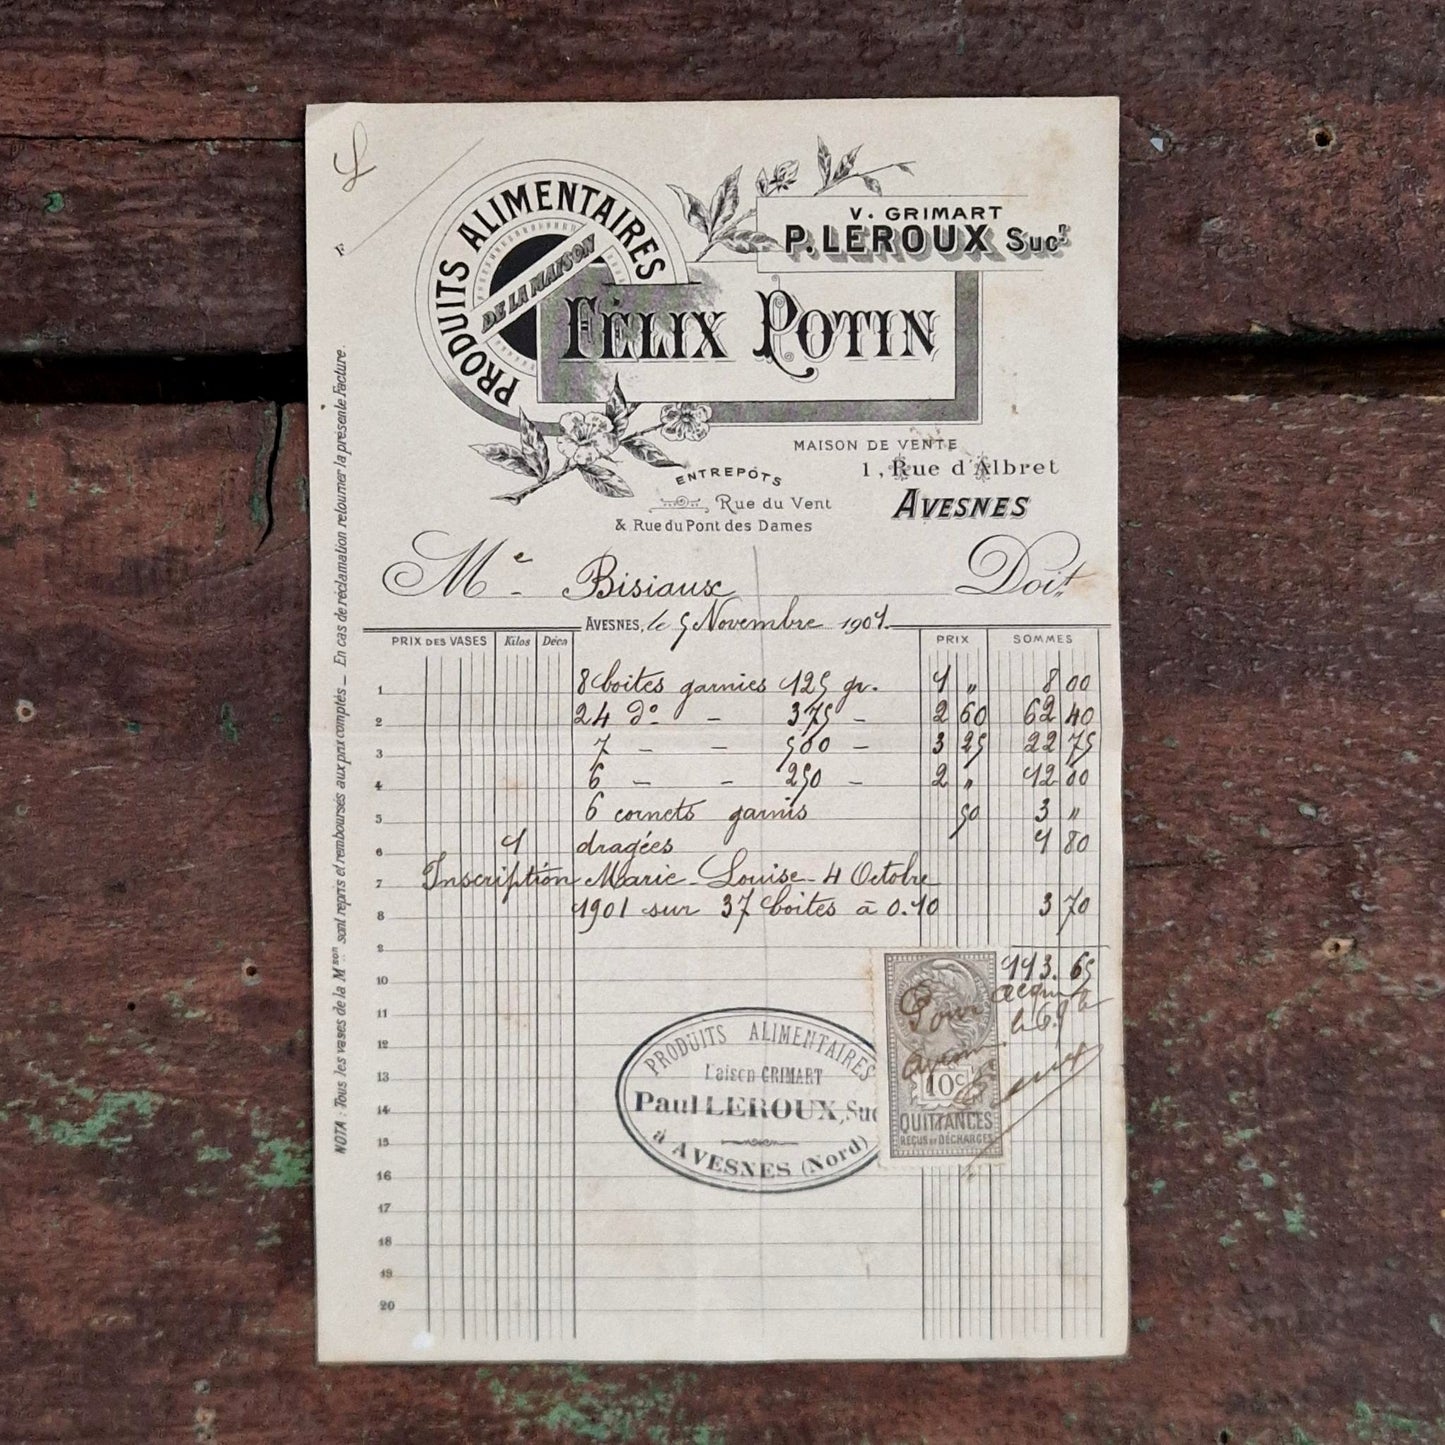 PRODUITS ALIMENTAIRES
DE LA MAISON
FÉLIX POTIN
V. GRIMART
P. LEROUX Sucr
MAISON DE VENTE
1, Rue d'Albret
AVESNES
ENTREPÔTS
Rue du Vent
& Rue du Pont des Dames
Me Bisiaux Doit
AVESNES, le 5 Novembre 1901.
PRIX DES VASES Kilos Déca PRIX SOMMES
1 8 boites garnies 125 gr. 1 " 8 00
2 24 do - 375 - 2 60 62 40
3 7 - - 500 - 3 25 22 75
4 6 - - 250 - 2 " 12 00
5 6 cornets garnis 50 3 "
6 1 dragées 1 80
7 Inscription Marie-Louise - 4 Octobre
8 1901 sur 37 boites à 0.10 3 70
9
10 113.65
11
12
13
14
15
16
17
18
19
20
Pour acquit
PRODUITS ALIMENTAIRES
Maison GRIMART
Paul LEROUX, Suc
à AVESNES (Nord)
10c
QUITTANCES
REÇUS ET DÉCHARGES
NOTA : Tous les vases de la Mson sont repris et remboursés aux prix comptés _ En cas de réclamation retourner la présente Facture.